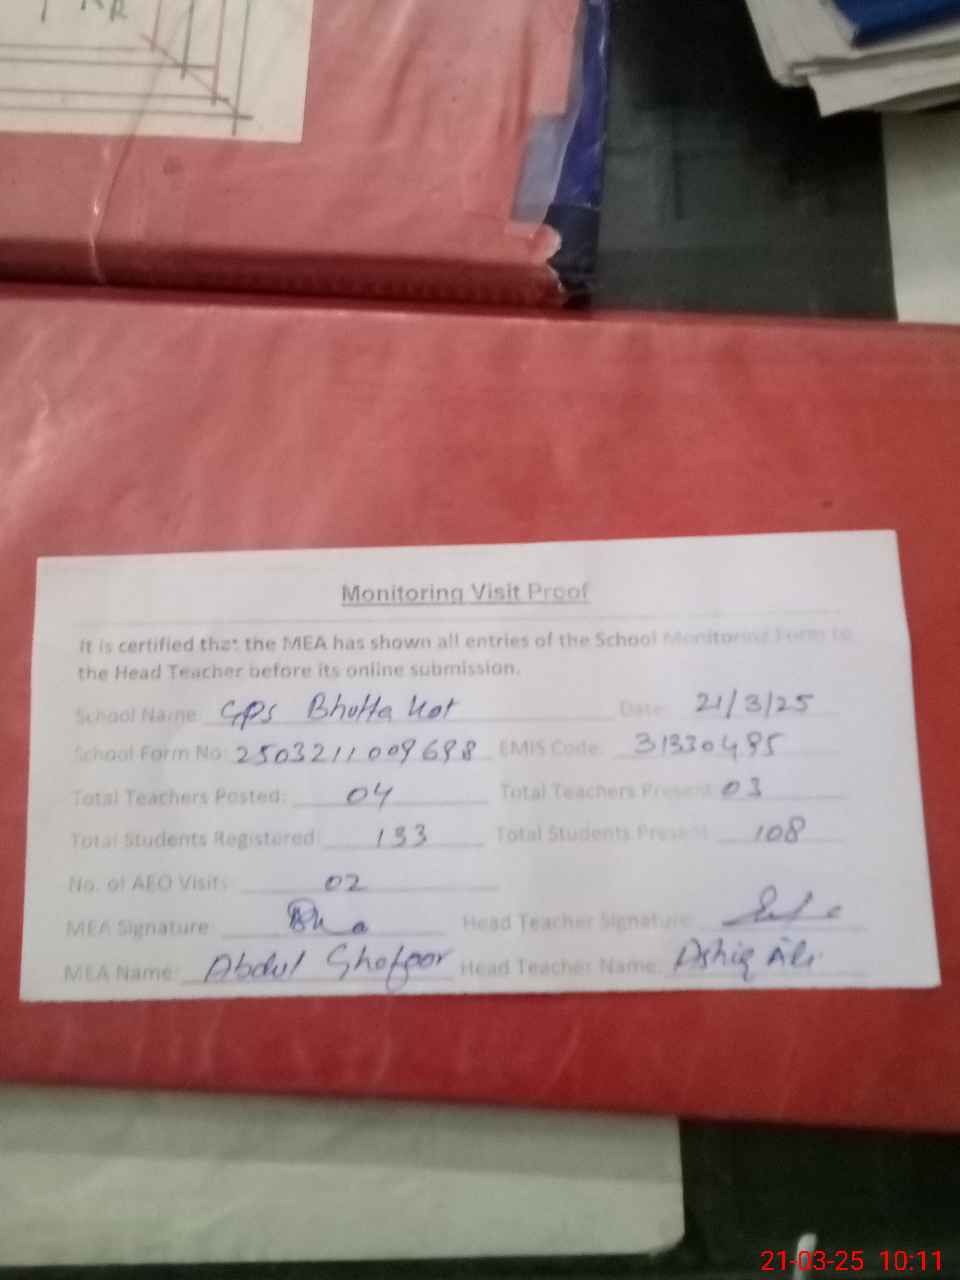 Monitoring Visit Proof
It is certified that the MEA has shown all entries of the School Monitoring Form to
the Head Teacher before its online submission.
School Name: GPS Bhutta Kot Date: 21/3/25
School Form No: 2503211009698 EMIS Code: 31330495
Total Teachers Posted: 04 Total Teachers Present: 03
Total Students Registered: 133 Total Students Present: 108
No. of AEO Visits: 02
MEA Signature: Head Teacher Signature:
MEA Name: Abdul Ghafoor Head Teacher Name: Ashiq Ali
21-03-25 10:11